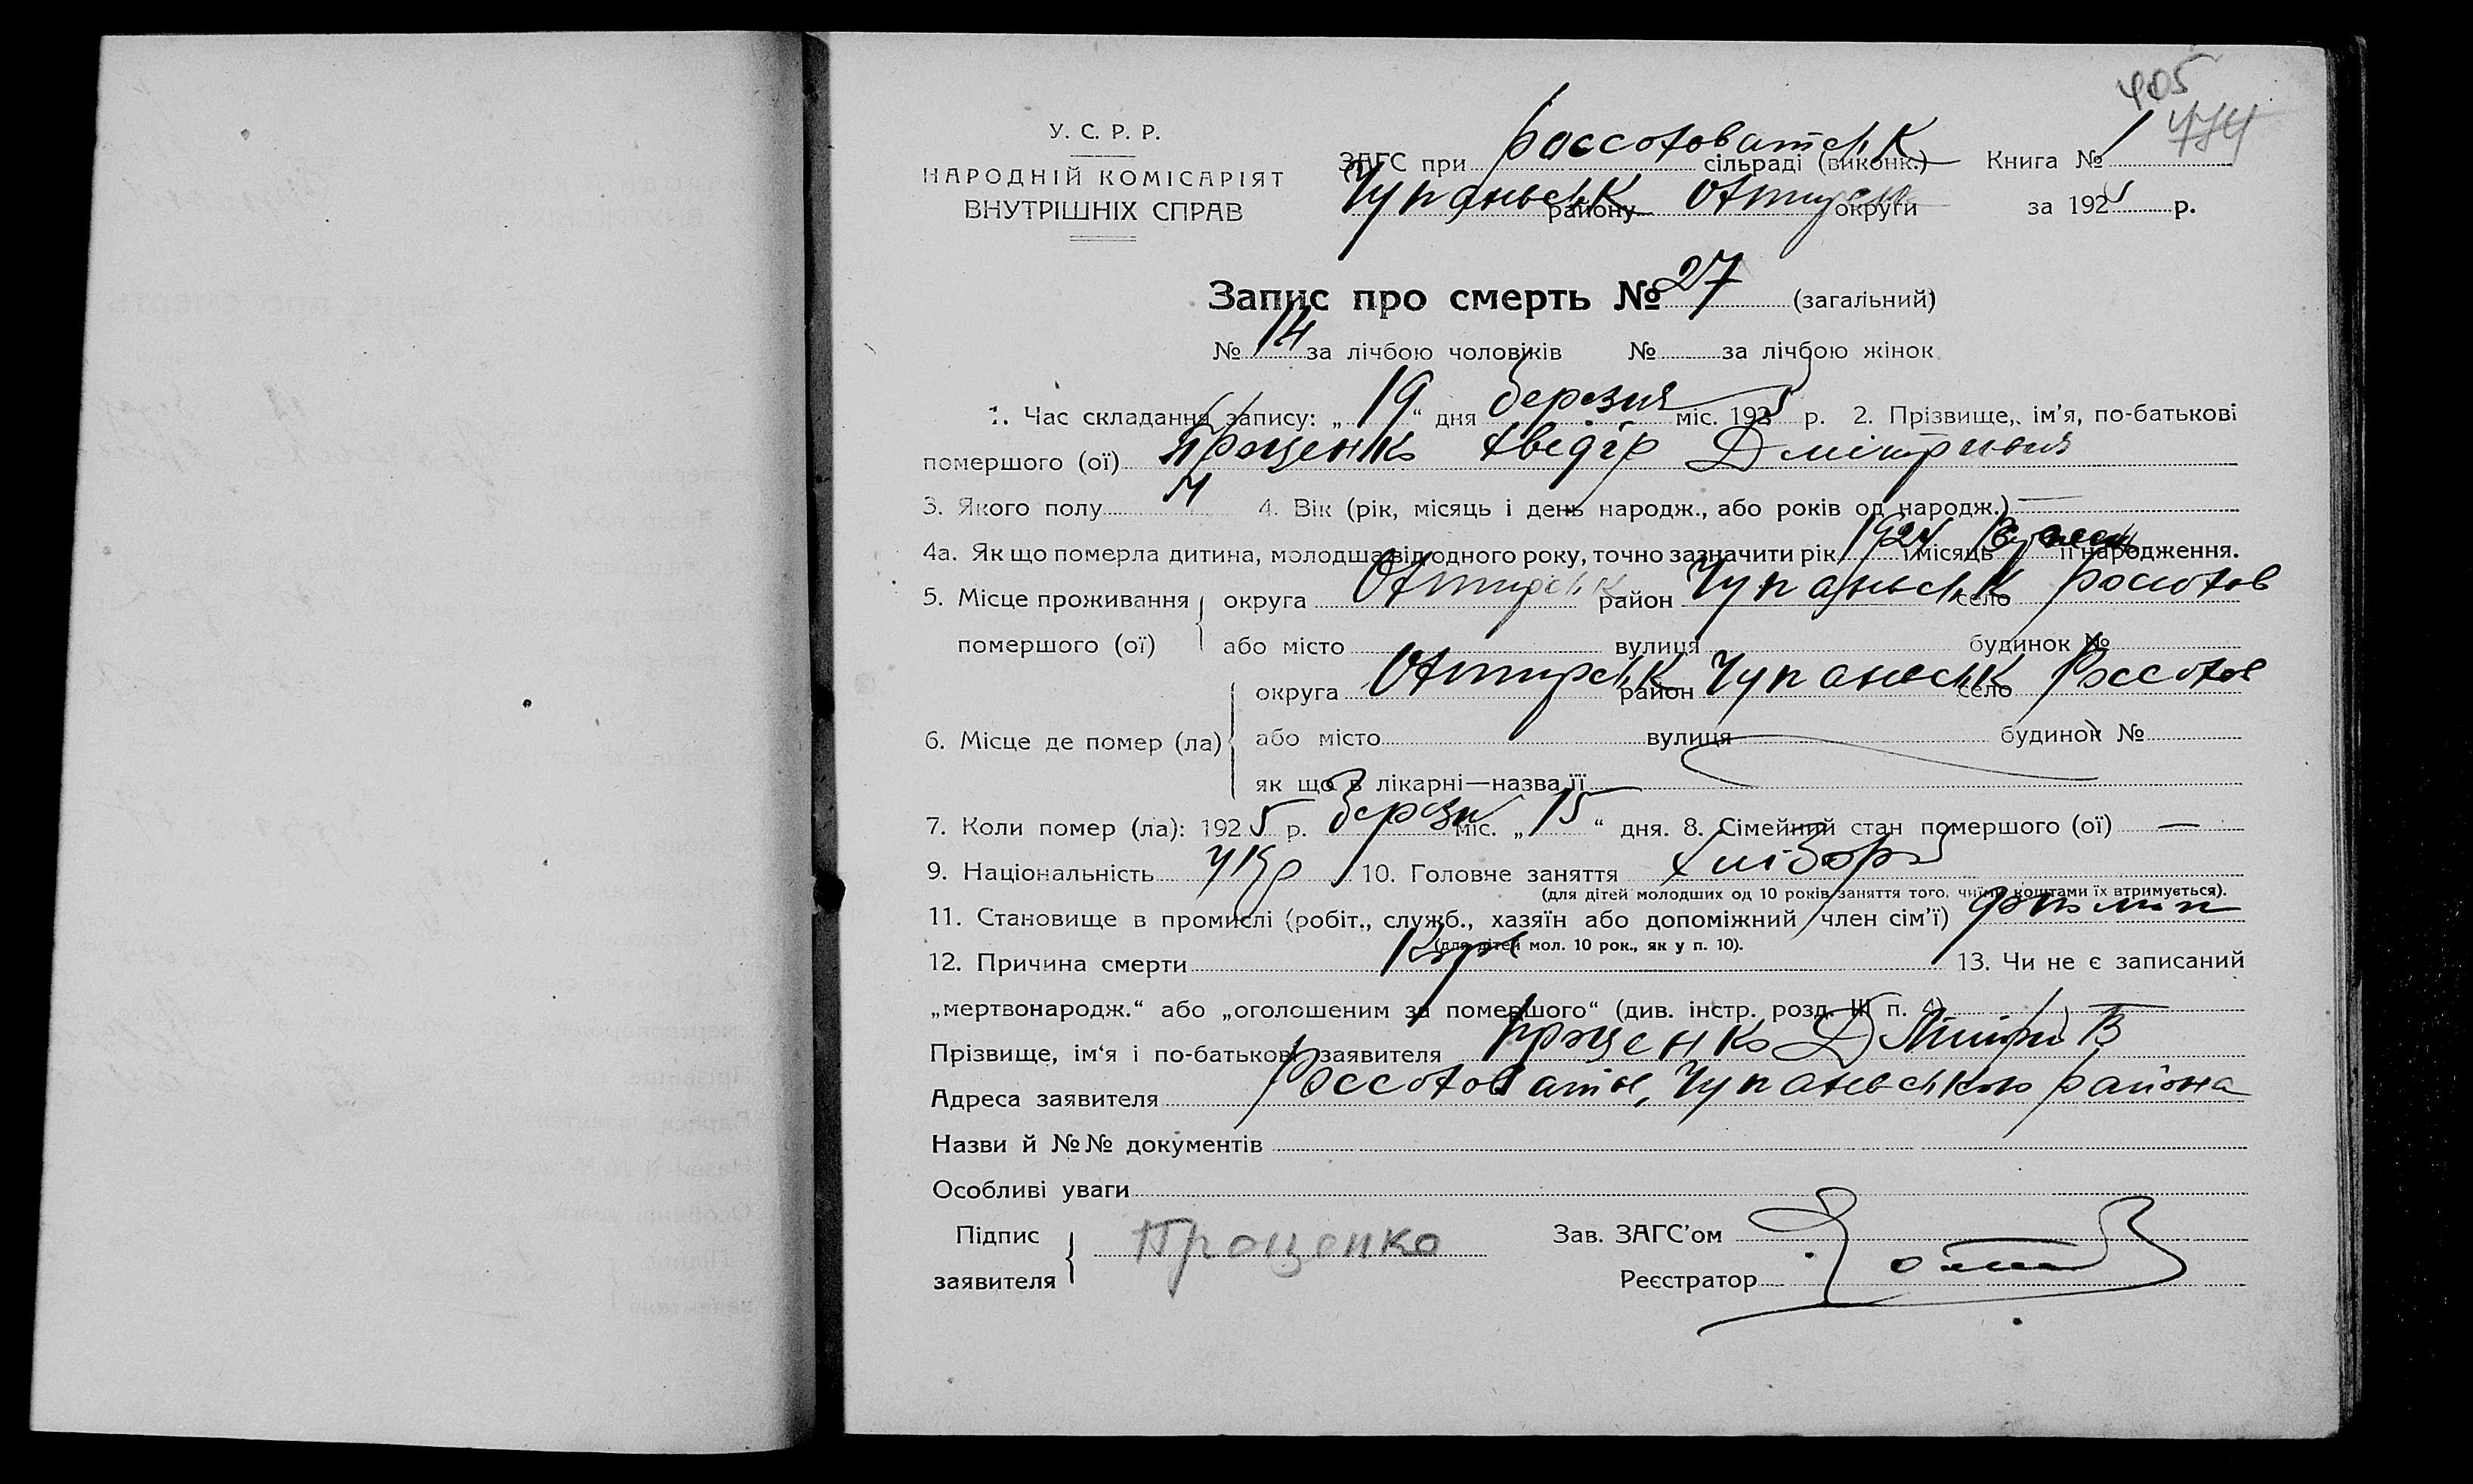 405
У. С. Р. Р.
НАРОДНІЙ КОМІСАРІЯТ
ВНУТРІШНІХ СПРАВ
ЗАГС при Россоховатськ сільраді (виконк.) Книга № 1
Чупахівськ району Охтирськ округи за 1925 р.
Запис про смерть № 27 (загальний)
№ 14 за лічбою чоловіків № за лічбою жінок
1. Час складання запису: „ 19 “ дня березня міс. 1925 р. 2. Прізвище, ім’я, по-батькові
помершого (ої) Проценко Хведір Дмітрієвич
3. Якого полу Ч 4. Вік (рік, місяць і день народж., або років од народж.) —
4а. Як що померла дитина, молодша від одного року, точно зазначити рік 1924 і місяць її народження.
5. Місце проживання округа Охтирськ район Чупахівськ село Россохов
помершого (ої) або місто вулиця будинок №
округа Охтирськ район Чупахівськ село Россохов
6. Місце де помер (ла) або місто вулиця будинок №
як що в лікарні—назва її
7. Коли помер (ла): 1925 р. березн міс. „ 15 “ дня. 8. Сімейний стан помершого (ої) —
9. Національність Укр 10. Головне заняття Хлібороб
(для дітей молодших од 10 років заняття того, чиїми коштами їх втримується).
11. Становище в промислі (робіт., служб., хазяїн або допоміжний член сім’ї) допоміж
(для дітей мол. 10 рок., як у п. 10).
12. Причина смерти Кір 13. Чи не є записаний
„мертвонародж.“ або „оголошеним за помершого“ (див. інстр. розд. III п. 4) —
Прізвище, ім‘я і по-батькові заявителя Проценко Дмитро В
Адреса заявителя Россоховатое, Чупахівського района
Назви й №№ документів
Особливі уваги
Підпис Проценко Зав. ЗАГС’ом
заявителя Реєстратор